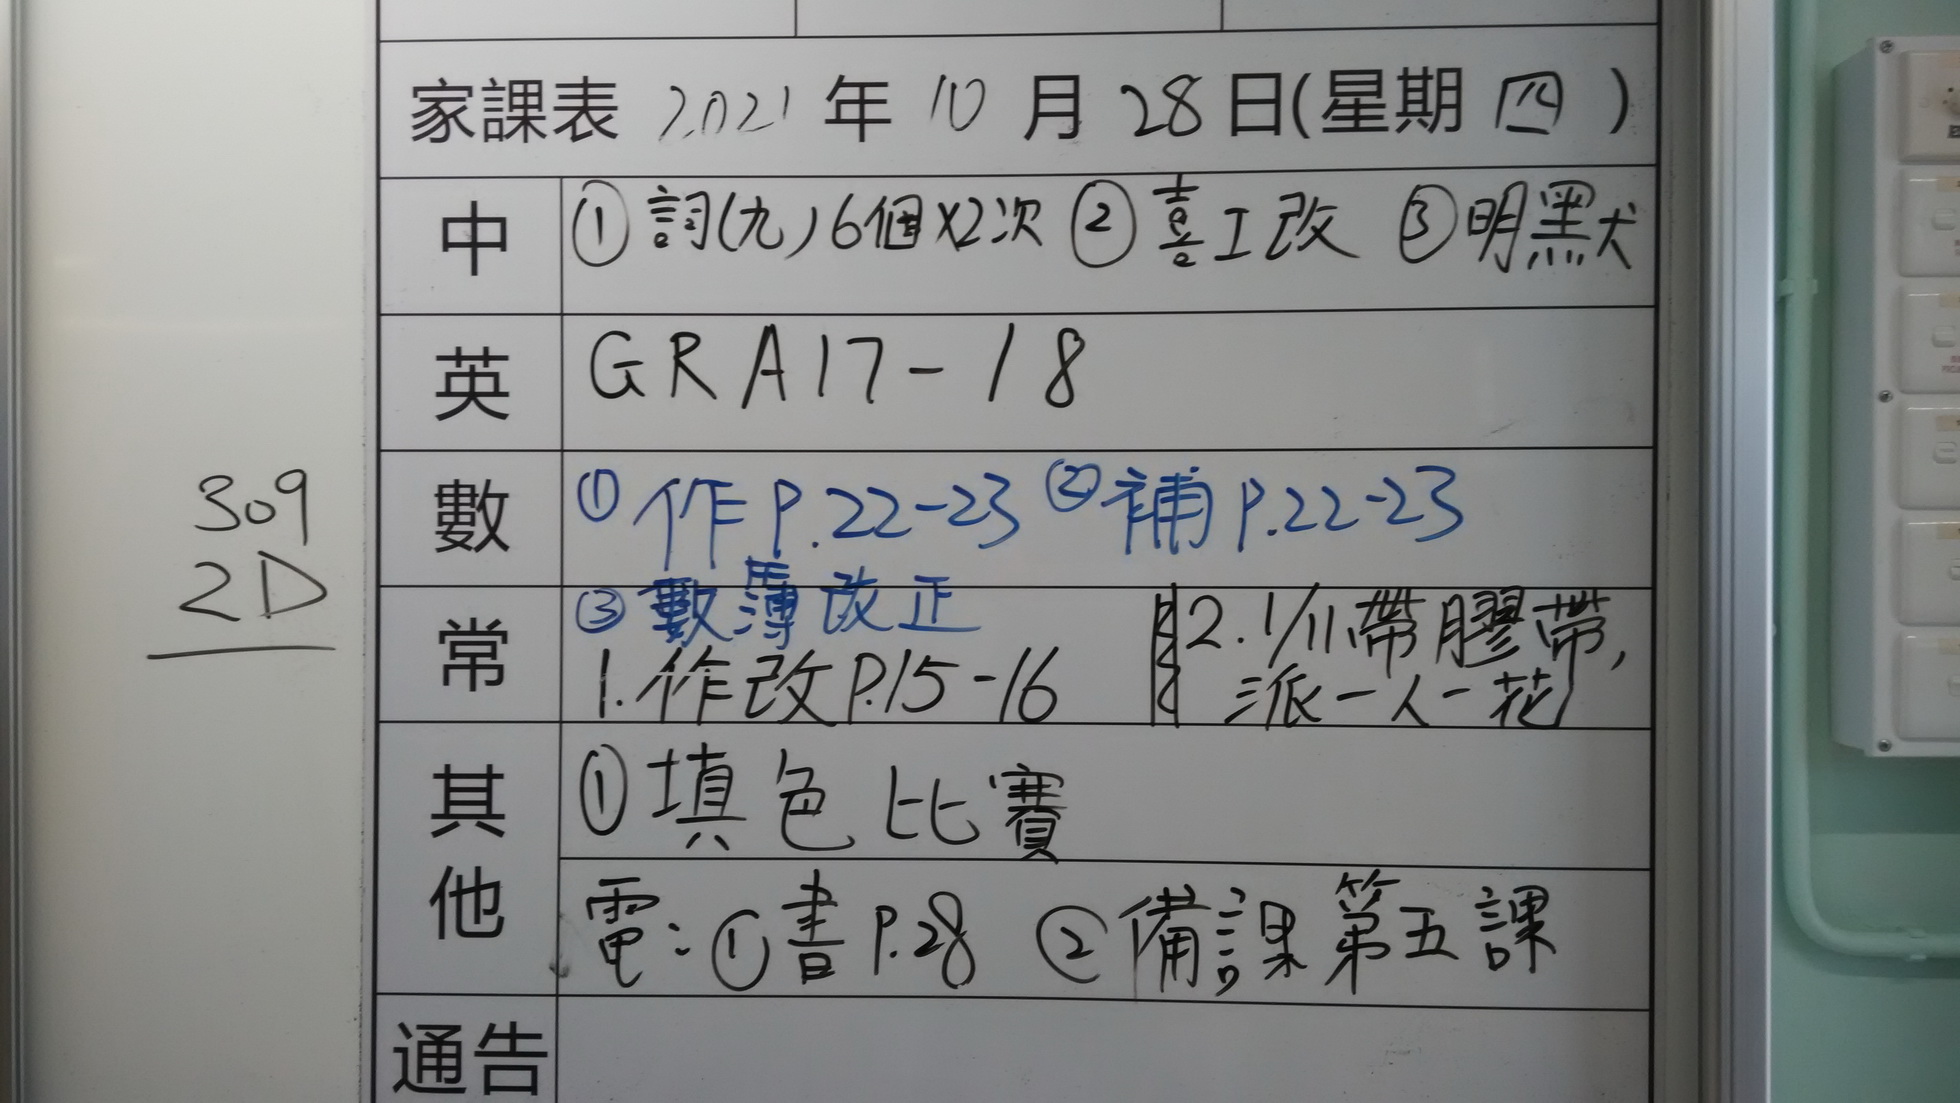 家課表 2021 年 10 月 28 日(星期 四 )
中 ①詞(九)6個X2次 ②喜工改 ③明默犬
英 GRA17-18
數 ①作P.22-23 ②補P.22-23
③數簿改正
常 1.作改P.15-16 2.1/11帶膠帶,
派一人一花
其他 ①填色比賽
電:①書P.28 ②備課第五課
通告
309
2D